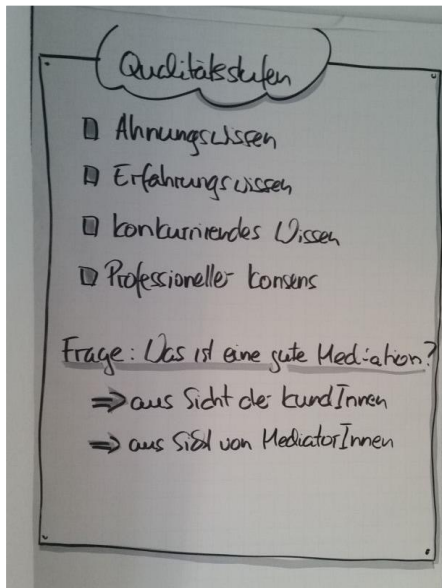 Qualitätsstufen
Ahnungswissen
Erfahrungswissen
konkurrierendes Wissen
Professioneller Konsens
Frage: Was ist eine gute Mediation?
⇒ aus Sicht der KundInnen
⇒ aus Sicht von MediatorInnen